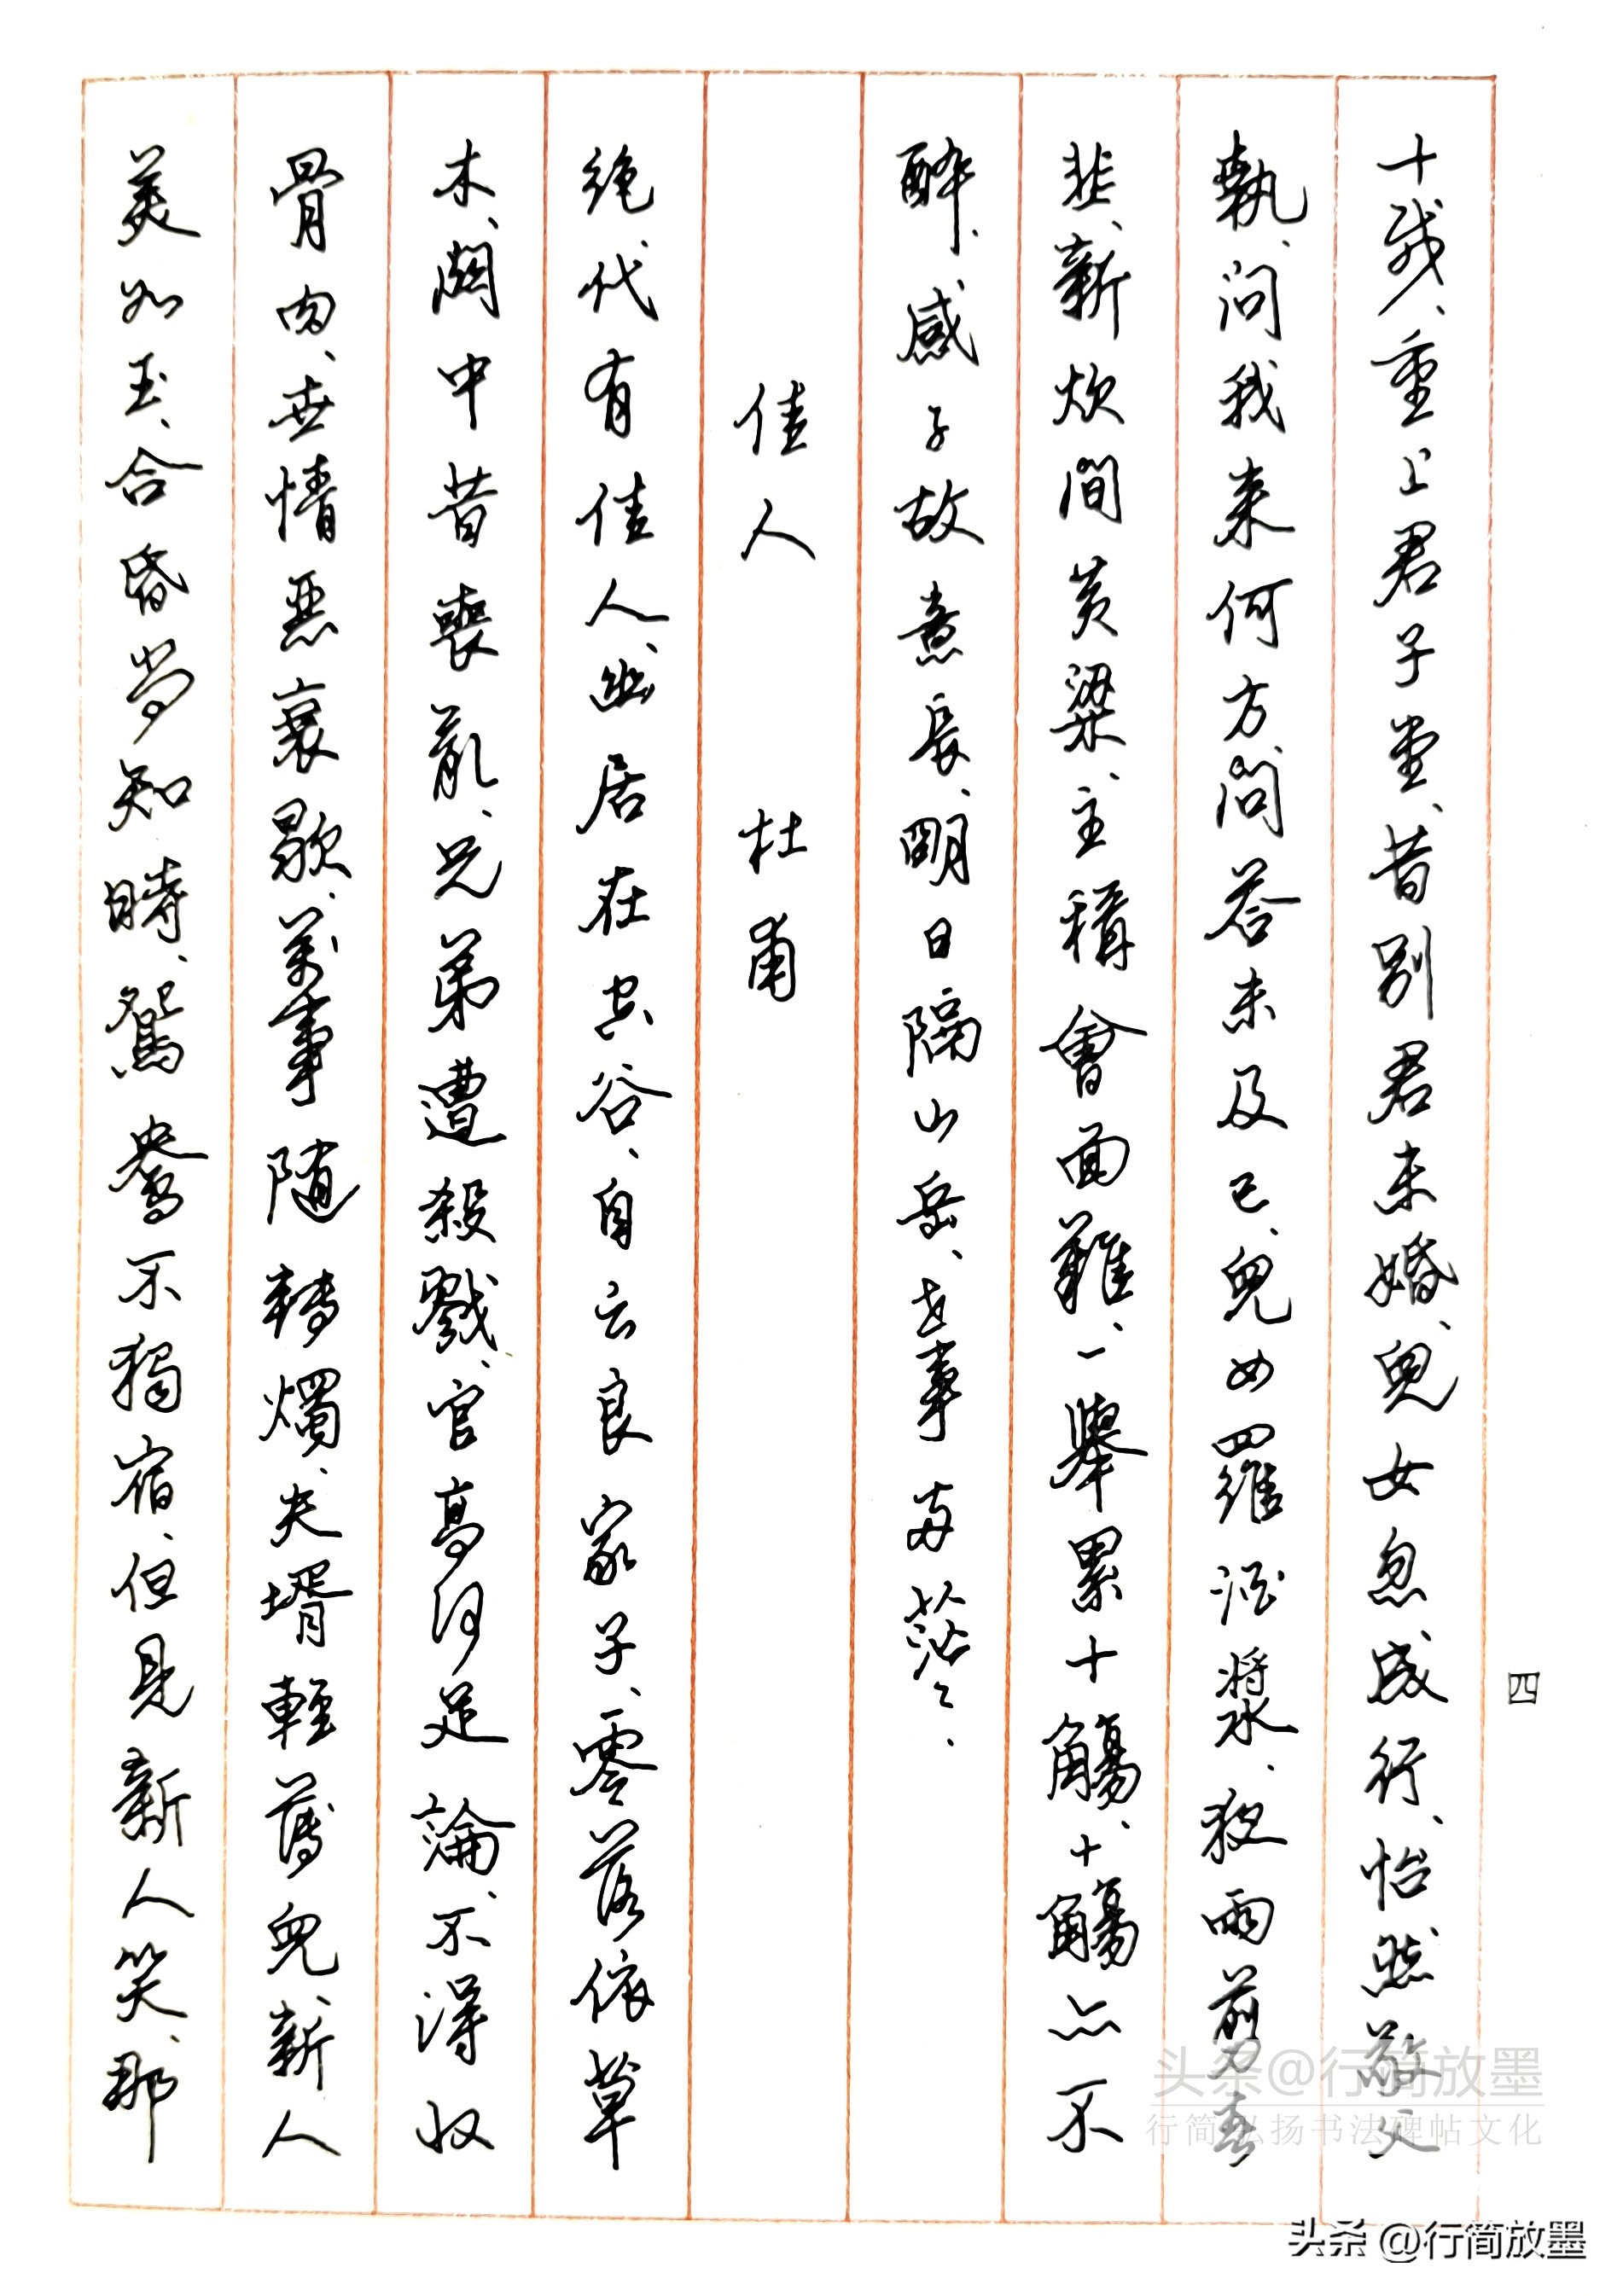 十載、重上君子堂、昔别君未婚、兒女忽成行、怡然敬父
執、問我来何方、問答未及已、兒女羅酒漿、夜雨剪春
韭、新炊間黄粱、主稱會面難、一舉累十觴、十觴亦不
醉、感子故意長、明日隔山岳、世事两茫々、
佳人 杜甫
绝代有佳人、幽居在空谷、自云良家子、零落依草
木、關中昔喪亂、兄弟遭殺戮、官高何足論、不得收
骨肉、世情惡衰歇、萬事随轉燭、夫壻輕薄兒、新人
美如玉、合昏尚知時、鴛鴦不獨宿、但見新人笑、那
四
头条@行简放墨
行简弘扬书法碑帖文化
头条 @行简放墨